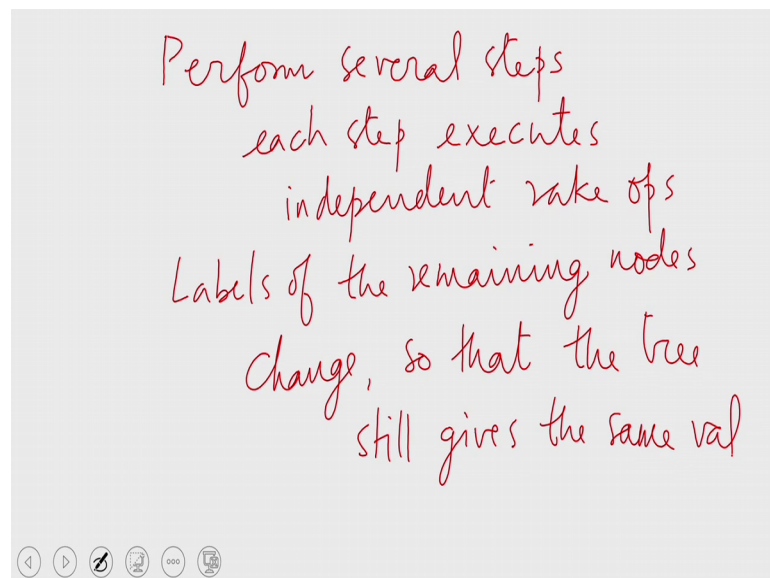 Perform several steps
each step executes
independent rake ops
Labels of the remaining nodes
change, so that the tree
still gives the same val